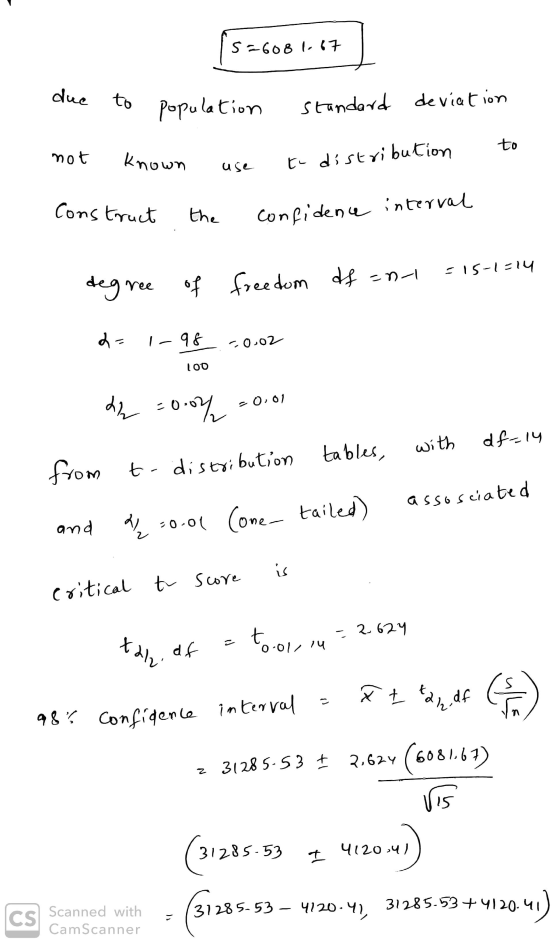 S=6081.67
due to population standard deviation
not known use t-distribution to
Construct the confidence interval
degree of freedom df = n-1 = 15-1=14
α = 1 - 98/100 = 0.02
α/2 = 0.02/2 = 0.01
from t-distribution tables, with df=14
and α/2 = 0.01 (one-tailed) assosciated
critical t score is
tα/2, df = t0.01, 14 = 2.624
98% confidence interval = x̄ ± tα/2, df (S/√n)
= 31285.53 ± 2.624 (6081.67)/√15
(31285.53 ± 4120.41)
= (31285.53 - 4120.41, 31285.53 + 4120.41)
CS Scanned with
CamScanner